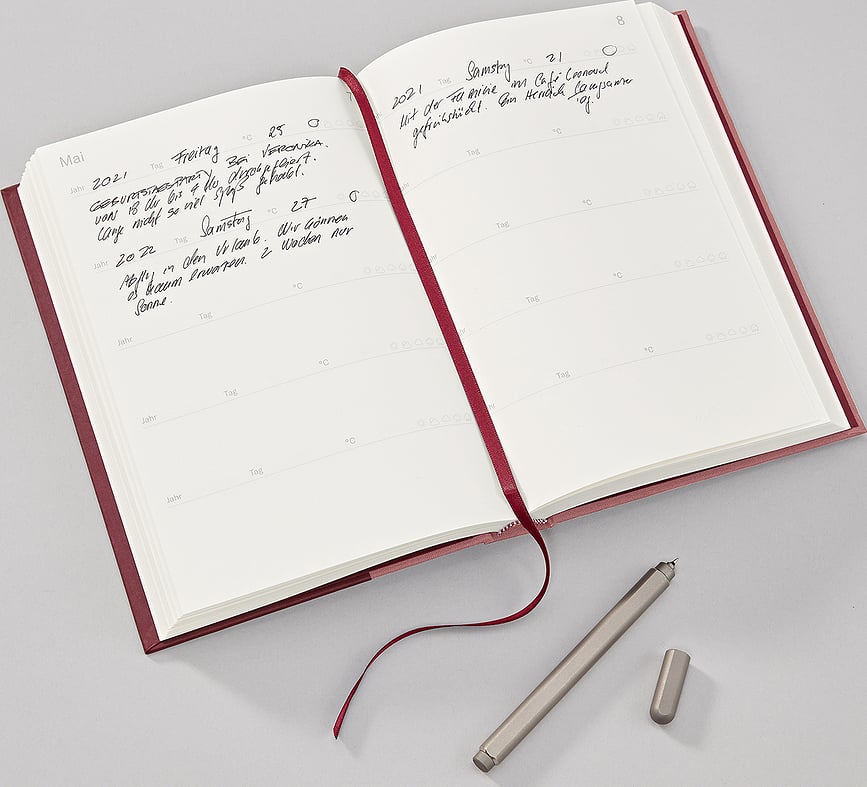 Mai
Jahr 2021 Tag Freitag 25 °C
GEBURTSTAGSPARTY BEI VERONIKA.
VON 18 Uhr bis 4 Uhr durchgefeiert.
Lange nicht so viel Spaß gehabt.
Jahr 2022 Tag Samstag 27 °C
Abflug in den Urlaub. Wir können
es kaum erwarten. 2 Wochen nur
Sonne.
Jahr Tag °C
Jahr Tag °C
Jahr Tag °C
8
2021 Tag Samstag 21 °C
Mit der Familie im Café Leonard
gefrühstückt. Ein Herrlich langsamer
Tag.
Tag °C
Tag °C
Tag °C
Tag °C